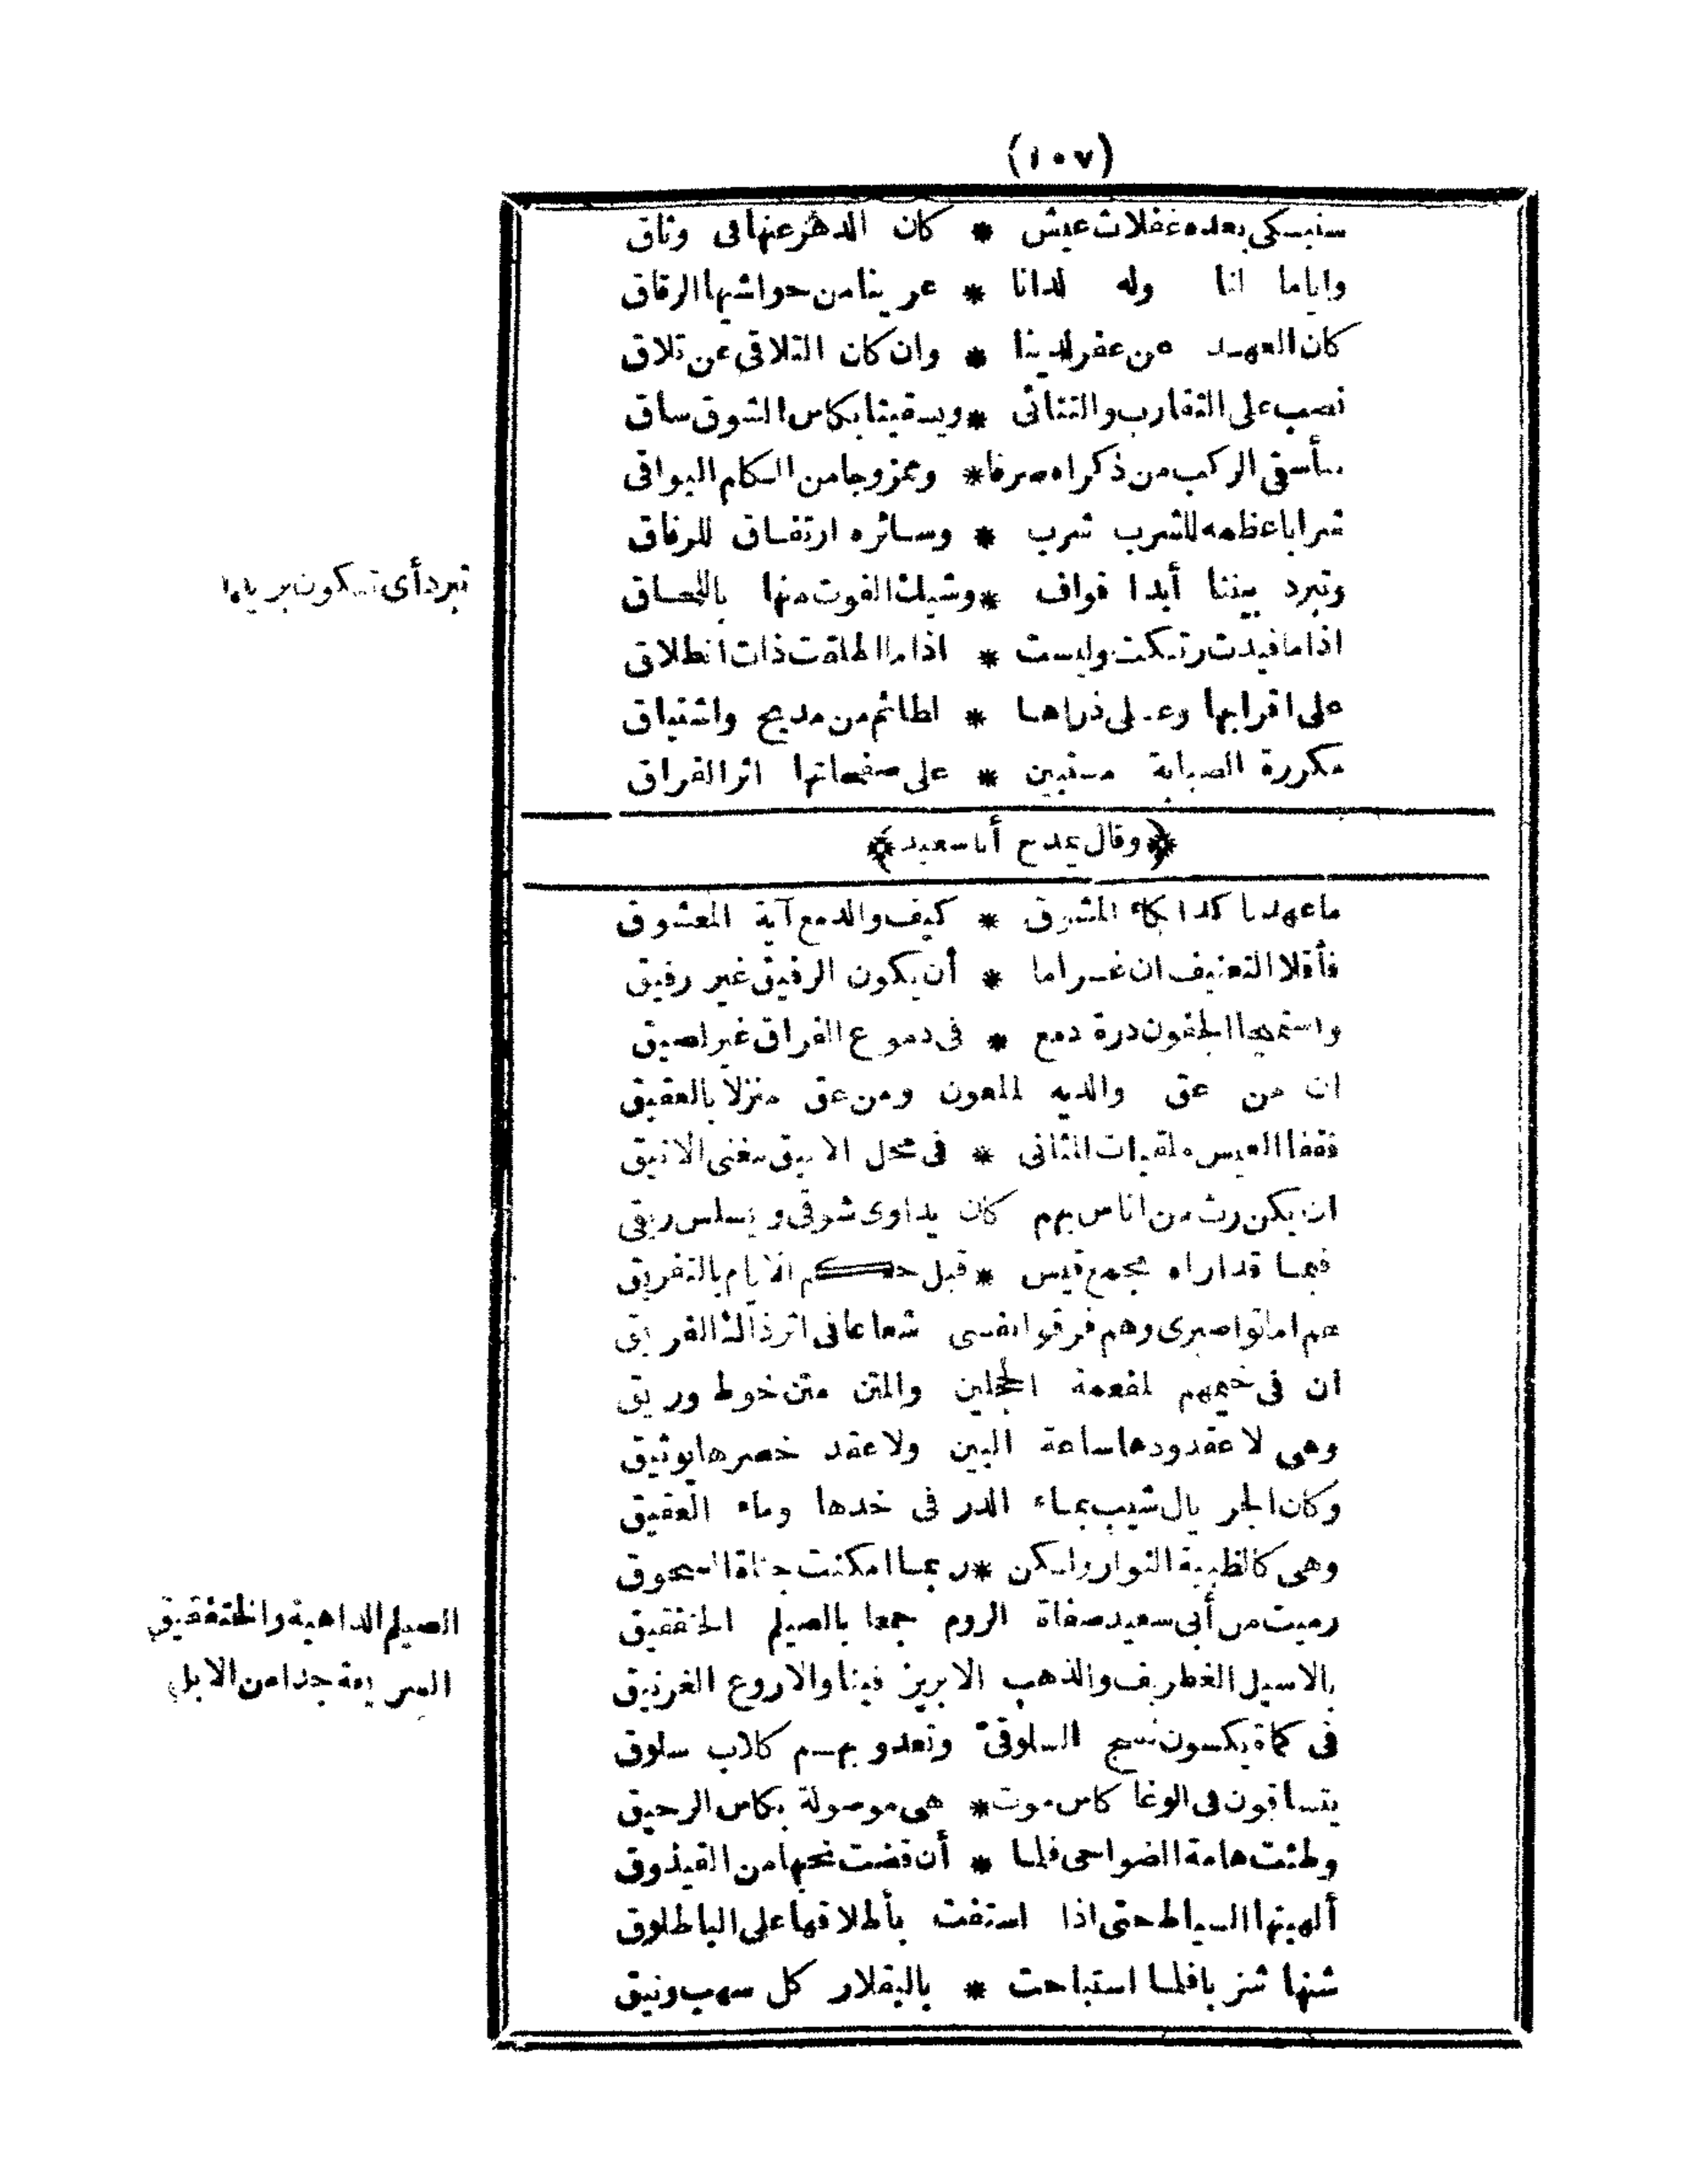 (١٠٧)
سنبكى بعده غفلات عيش * كان الدهر عنها فى وثاق
واياما لنا وله لدانا * عرينا من حواشيها الرقاق
كان العهد عن عفر لدينا * وان كان التلاقى عن تلاق
نصب على التقارب والتنائى * ويسقينا بكاس الشوق ساق
سأسقى الركب من ذكراه صرفا * وممزوجا من الكلم البواقى
شرابا عظمه للشرب شرب * وسائره ارتفاق للرفاق
وتبرد بيننا أبدا قواف * وشيك الفوت منها باللحاق
اذا ما قيدت رتكت وليست * اذا ما اطلقت ذات انطلاق
على اقرابها وعلى ذراها * لطائم من مديح واشتياق
مكررة الصبابة مستبين * على صفحاتها اثر الفراق
تبرد أى تكون بريدا
﴿وقال يمدح أبا سعيد﴾
ما عهدنا كذا بكاء المشوق * كيف والدمع آية المعشوق
فأقلا التعنيف ان غراما * أن يكون الرفيق غير رفيق
واستميحا الجفون درة دمع * فى دموع الفراق غير لصيق
ان من عق والديه لملعون ومن عق منزلا بالعقيق
فقفا العيس ملقيات المثانى * فى محل الانيق مغنى الانيق
ان يكن رث من اناس بهم كان يداوى شوقى ويسلس ريقى
فبما قد اراه مجمع قيس * قبل حكم الايام بالتفريق
هم اماتوا صبرى وهم فرقوا نفسى شعاعا فى اثر ذاك الفريق
ان فى خيمهم لمفعمة الحجلين والمتن متن خوط وريق
وهى لا عقد ودها ساعة البين ولا عقد خصرها بوثيق
وكان الجريال شيب بماء الدر فى خدها وماء العقيق
وهى كالظبية النوار ولكن * ربما امكنت جناة السحوق
رميت من أبى سعيد صفاة الروم جمعا بالصيلم الخنفقيق
الصيلم الداهية والخنفقيق
السريعة جدا من الابل
بالاسيل الغطريف والذهب الابريز فينا والاروع الغرنيق
فى كماة يكسون نسج السلوقى وتعدو بهم كلاب سلوق
يتساقون فى الوغا كاس موت * هى موصولة بكاس الرحيق
وطئت هامة الضواحى فلما * أن قضت نحبها من القيذوق
ألهبتها السياط حتى اذا استفت بأطلاقها على الباطلوق
شنها شزبا فلما استباحت * بالبقلار كل سهب ونيق